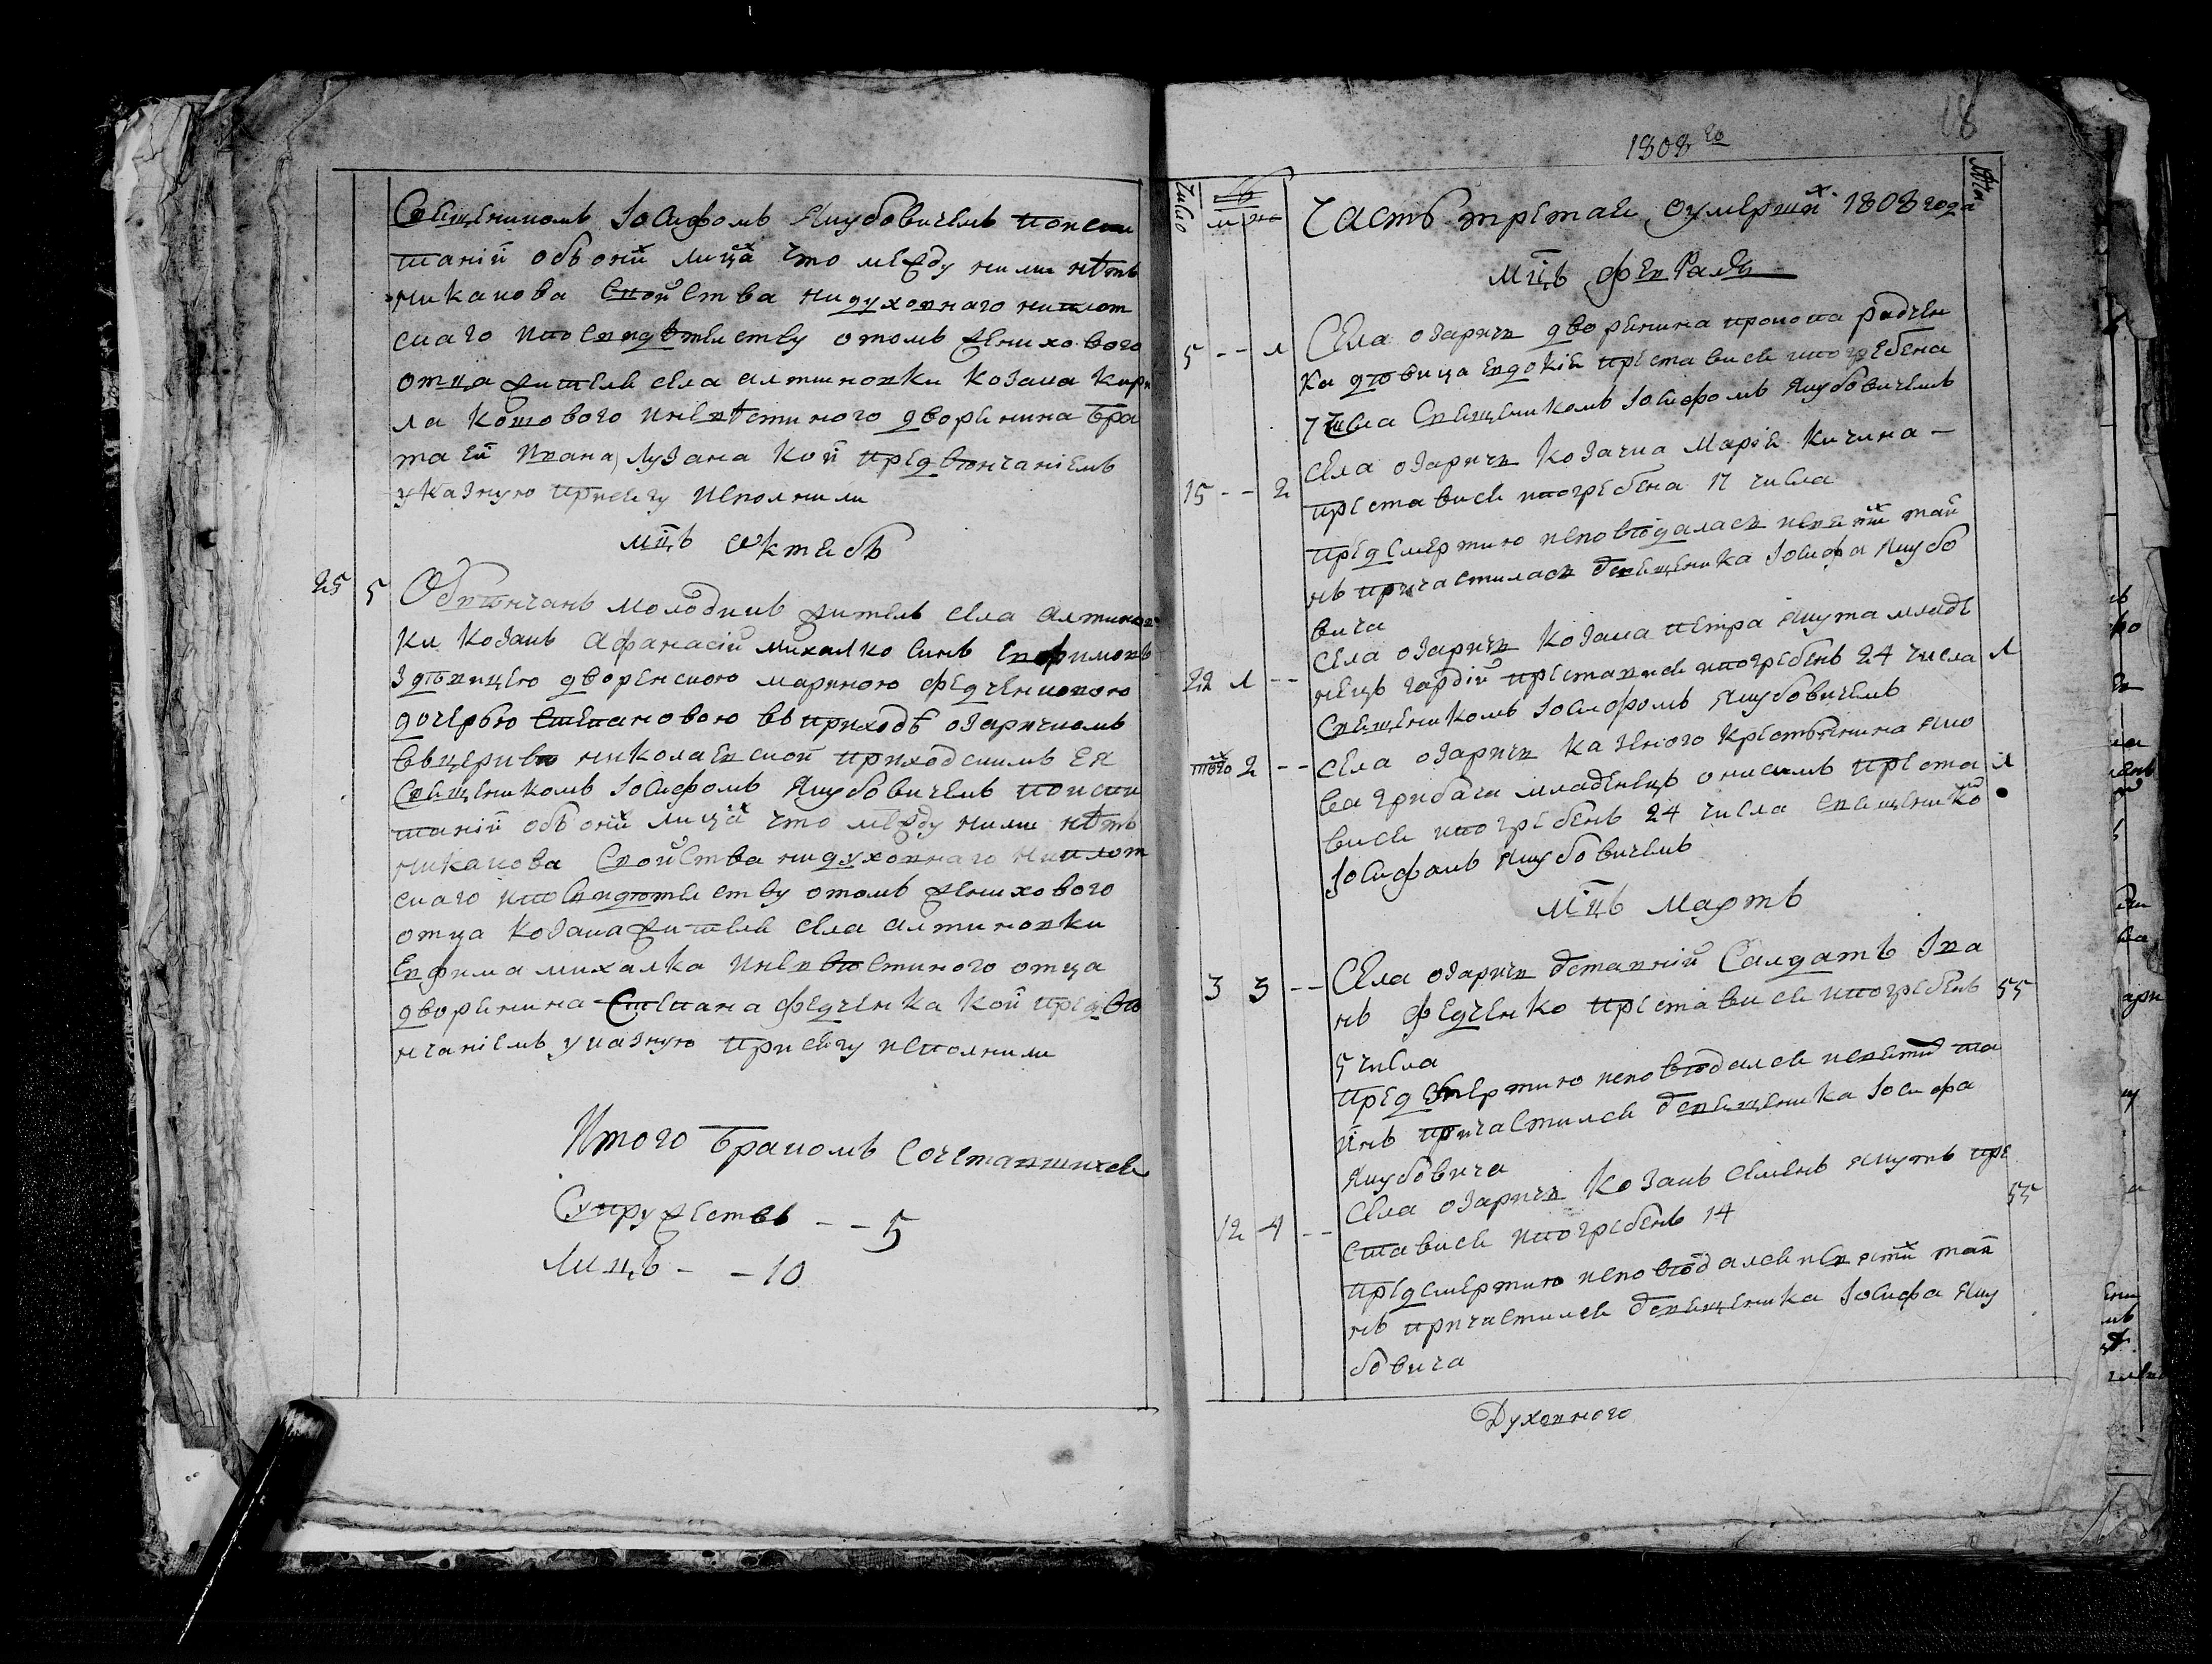 Священикомъ Іосифомъ Якубовичемъ по испи
таніи объ оних лицах что между ними нѣтъ
никакова свойства ни духовнаго ни плот
скаго и по свидѣтелству о томъ женихового
отца жителя села алтиновки козака Кири
ла Котового и невѣстиного дворенина бра
та ей Ивана Лузана кои предвѣнчаніемъ
указную присягу исполнили
мцъ октябъ
25 5 Обвѣнчанъ молодикъ житель села алтинов
ки козакъ афанасій михалко синъ евфимовъ
з дѣвицею дворенскою мариною федченковою
дочерью степановою въ приходѣ озаричкомъ
въ церквѣ николаевской приходскимъ ея
священикомъ Іосифомъ Якубовичемъ по испи
таніи объ оних лицах что между ними нѣтъ
никакова свойства ни духовнаго ни плот
скаго и по свидѣтелству о томъ женихового
отца козака жителя села алтиновки
евфима михалка и невѣстиного отца
дворенина степана федченка кои предвѣ
нчаніемъ указную присягу исполнили
Итого бракомъ сочетавшихся
Супружествъ - - 5
Лицъ - - 10
1808 го
18
Число м же Лѣта
Часть третая о умерших 1808 года
мцъ февраль
5 - - 1 Села озаричъ дворенина прокопа радчен
ка дѣвица евдокія преставися и погребена
7 числа священикомъ Іосифомъ Якубовичемъ
15 - - 2 Села озаричъ козачка Марія Кичина -
преставися и погребена 17 числа
предсмертию исповѣдалась и святих таи
нъ причастилась от священика Іосифа Якубо
вича
22 1 - - Села озаричъ козака петра якута младе 1
нецъ гордій преставися и погребенъ 24 числа
священикомъ Іосифомъ Якубовичемъ
того 2 - - Села озаричъ казеного крестьянина яко 1
ва грибача младенецъ онисимъ преста
вися и погребенъ 24 числа священико
Іосифомъ Якубовичемъ
Мцъ Мартъ
3 3 - - Села озаричъ отставній Салдатъ Ива
нъ федченко преставися и погребенъ 55
5 числа
предсмертию исповѣдался и святих та
инъ причастился от священика Іосифа
Якубовича
12 4 - - Села озаричъ козакъ семенъ якутъ пре 55
ставися и погребенъ 14
предсмертию исповѣдался и святих таи
нъ причастился от священика Іосифа Яку
бовича
Духовного